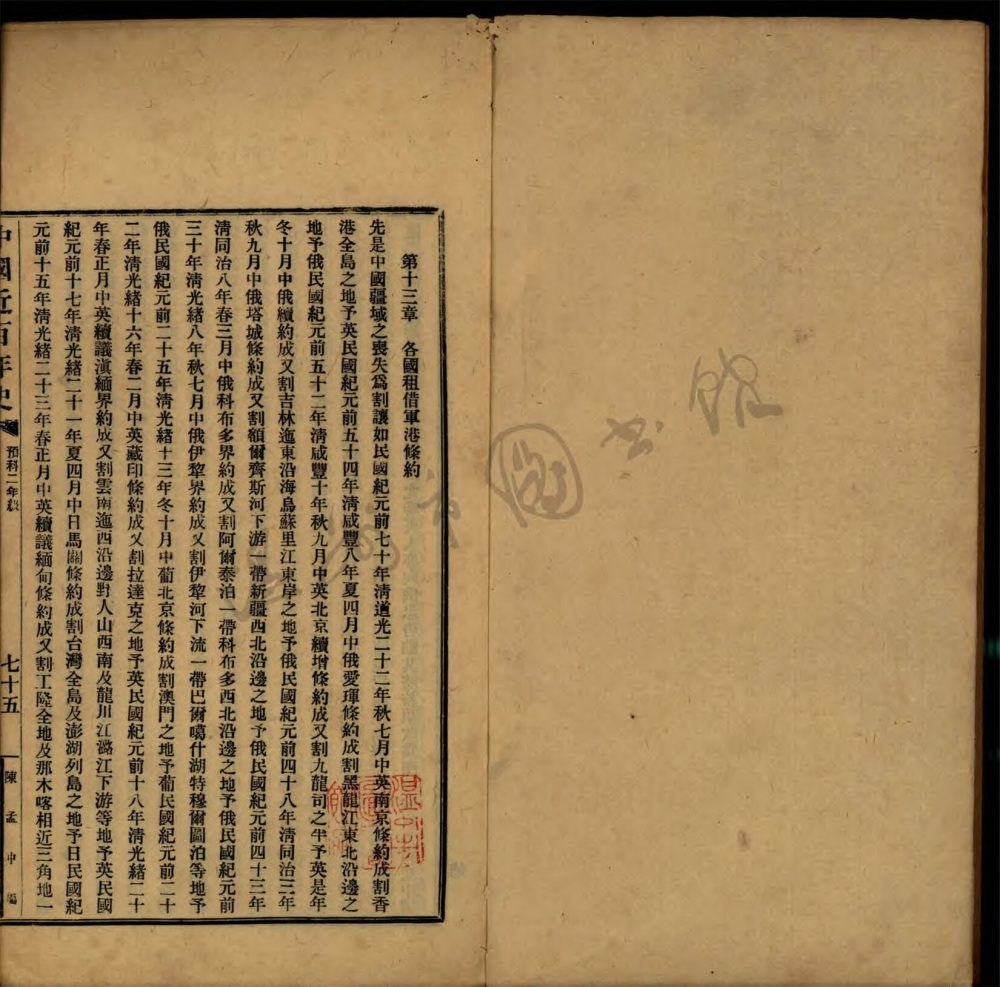 第十三章　各國租借軍港條約
先是中國疆域之喪失爲割讓如民國紀元前七十年清道光二十二年秋七月中英南京條約成割香
港全島之地予英民國紀元前五十四年清咸豐八年夏四月中俄愛琿條約成割黑龍江東北沿邊之
地予俄民國紀元前五十二年清咸豐十年秋九月中英北京續增條約成又割九龍司之半予英是年
冬十月中俄續約成又割吉林迤東沿海烏蘇里江東岸之地予俄民國紀元前四十八年清同治三年
秋九月中俄塔城條約成又割額爾齊斯河下游一帶新疆西北沿邊之地予俄民國紀元前四十三年
清同治八年春三月中俄科布多界約成又割阿爾泰泊一帶科布多西北沿邊之地予俄民國紀元前
三十年清光緒八年秋七月中俄伊犂界約成又割伊犂河下流一帶巴爾噶什湖特穆爾圖泊等地予
俄民國紀元前二十五年清光緒十三年冬十月中葡北京條約成割澳門之地予葡民國紀元前二十
二年清光緒十六年春二月中英藏印條約成又割拉達克之地予英民國紀元前十八年清光緒二十
年春正月中英續議滇緬界約成又割雲南迤西沿邊對人山西南及龍川江潞江下游等地予英民國
紀元前十七年清光緒二十一年夏四月中日馬關條約成割台灣全島及澎湖列島之地予日民國紀
元前十五年清光緒二十三年春正月中英續議緬甸條約成又割工隆全地及那木喀相近三角地一
中國近百年史　預科二年級　七十五　陳孟冲編